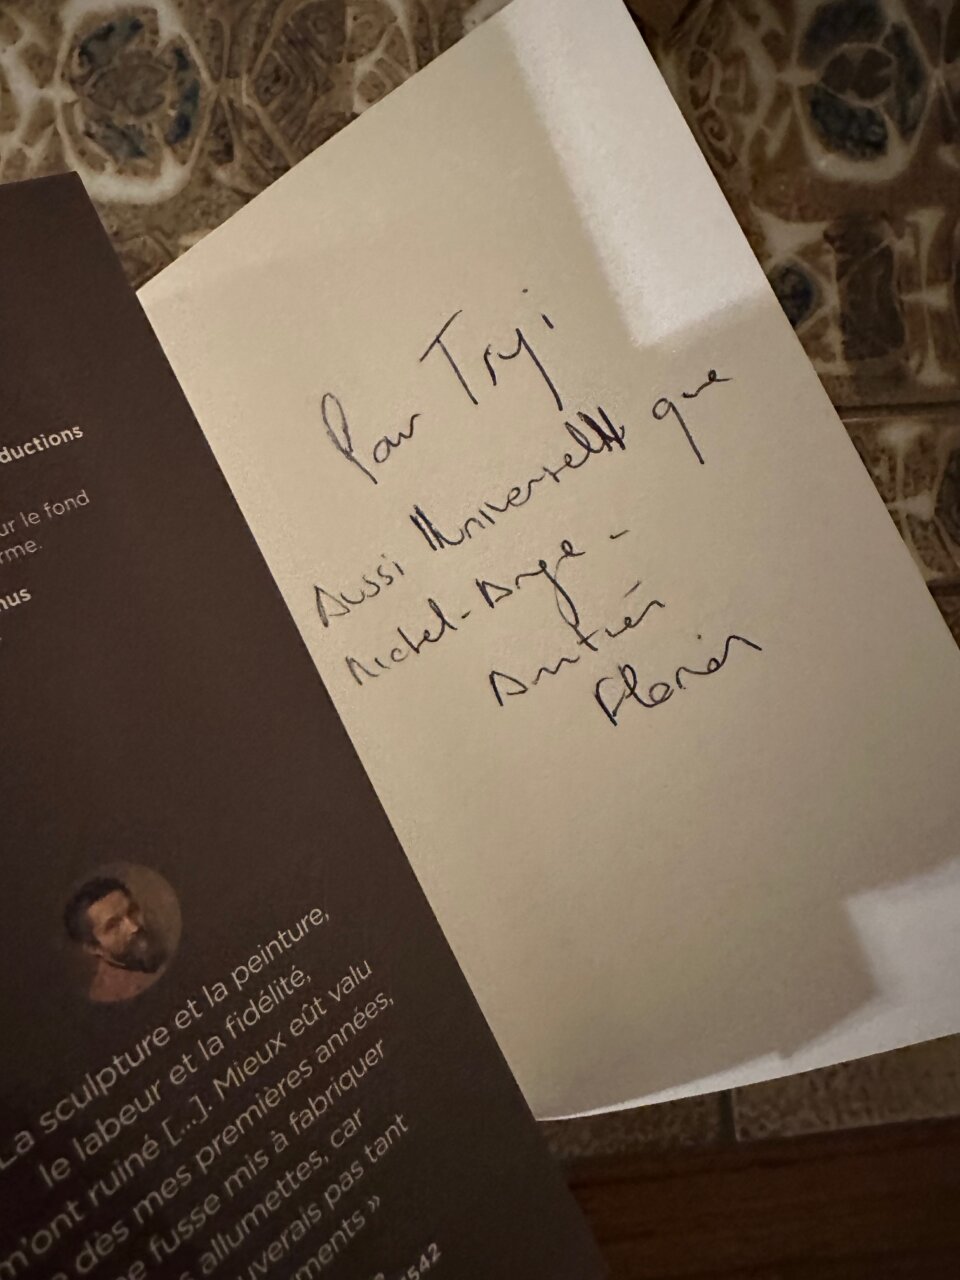 ductions
ur le fond
rme.
nus
La sculpture et la peinture,
le labeur et la fidélité,
m'ont ruiné [...]. Mieux eût valu
dès mes premières années,
fusse mis à fabriquer
allumettes, car
uverais pas tant
ments »
1542
Pour Tryi
Aussi Universell que
Michel-Ange -